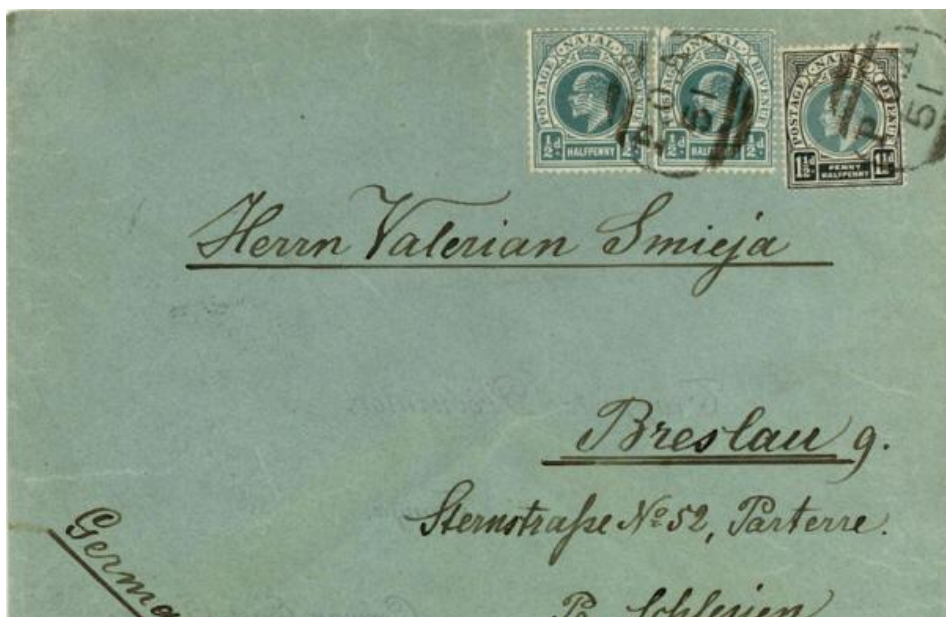 POSTAGE NATAL REVENUE
½d. HALFPENNY ½d.
POSTAGE NATAL REVENUE
½d. HALFPENNY ½d.
POSTAGE NATAL REVENUE
1½d PENNY HALFPENNY 1½d
P.O.A
51
P.O.A
51
Herrn Valerian Smieja
Breslau 9.
Sternstraße No 52, Parterre.
Pr. Schlesien